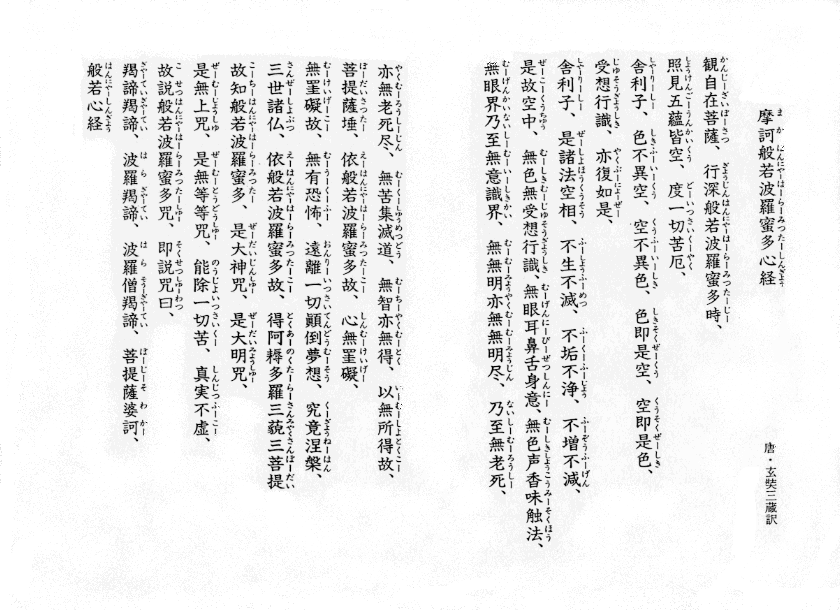 摩訶般若波羅蜜多心経
唐・玄奘三蔵訳
観自在菩薩、行深般若波羅蜜多時、
照見五蘊皆空、度一切苦厄、
舎利子、色不異空、空不異色、色即是空、空即是色、
受想行識、亦復如是、
舎利子、是諸法空相、不生不滅、不垢不浄、不増不減、
是故空中、無色無受想行識、無眼耳鼻舌身意、無色声香味触法、
無眼界乃至無意識界、無無明亦無無明尽、乃至無老死、
亦無老死尽、無苦集滅道、無智亦無得、以無所得故、
菩提薩埵、依般若波羅蜜多故、心無罣礙、
無罣礙故、無有恐怖、遠離一切顛倒夢想、究竟涅槃、
三世諸仏、依般若波羅蜜多故、得阿耨多羅三藐三菩提
故知般若波羅蜜多、是大神咒、是大明咒、
是無上咒、是無等等咒、能除一切苦、真実不虚、
故説般若波羅蜜多咒、即説咒曰、
羯諦羯諦、波羅羯諦、波羅僧羯諦、菩提薩婆訶、
般若心経